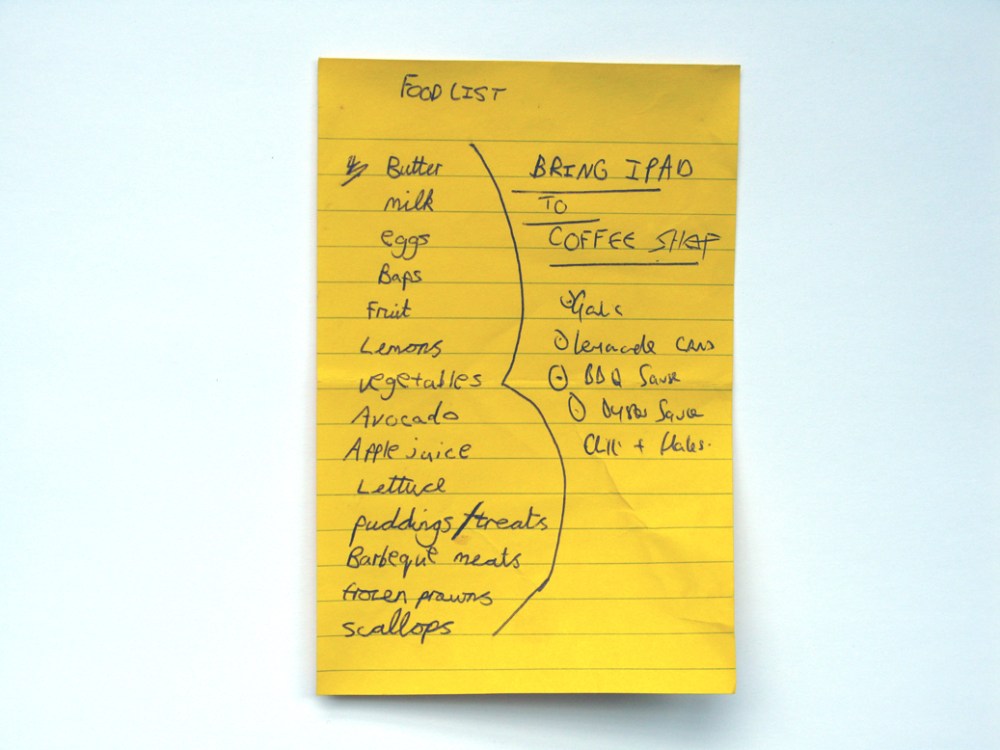 FOOD LIST
Butter
milk
eggs
Baps
Fruit
Lemons
vegetables
Avocado
Apple juice
Lettuce
puddings/treats
Barbeque meats
frozen prawns
scallops
BRING IPAD
TO
COFFEE SHOP
Lemonade cans
BBQ Sauce
Oyster Sauce
Chilli + flakes.